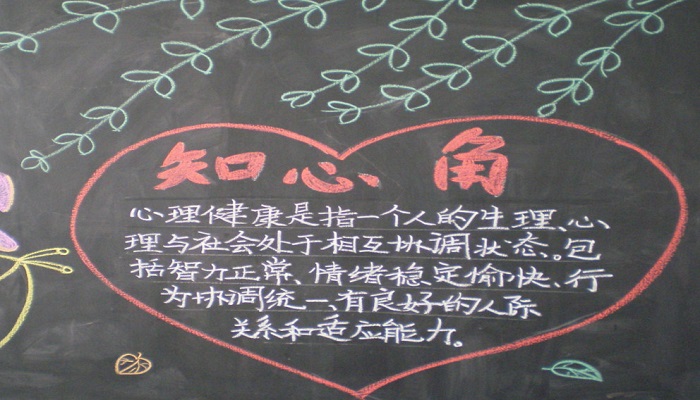 知心角
心理健康是指一个人的生理、心
理与社会处于相互协调状态。包
括智力正常、情绪稳定愉快、行
为协调统一、有良好的人际
关系和适应能力。